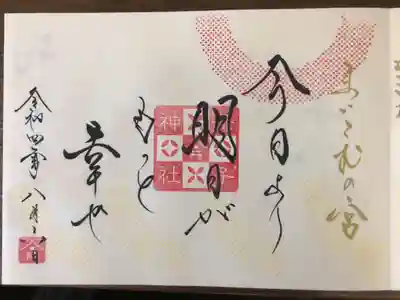 まごころの宮
今日より
明日が
もっと
幸せ
神社
令和四年八月